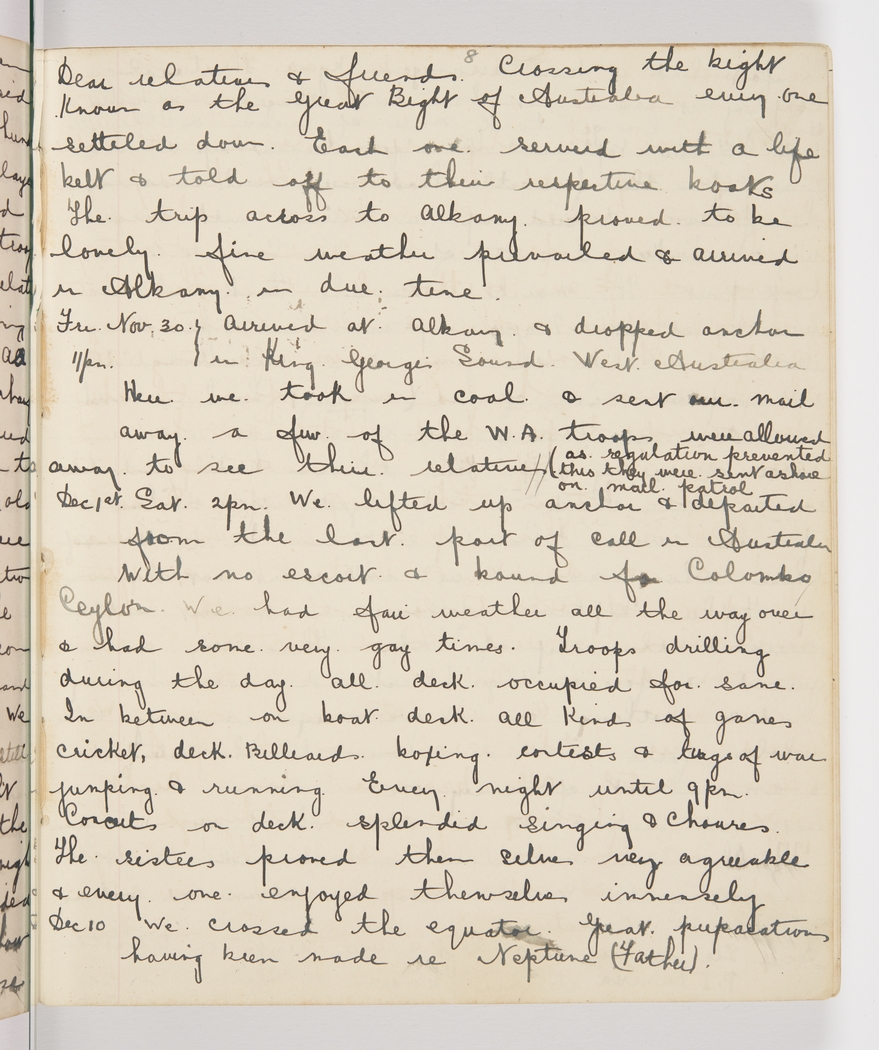 8
Dear relatives & friends. Crossing the bight
Known as the Great Bight of Australia every one
setteled down. Each one. serverd with a life
belt & told off to their respertive boats
The. trip across to Albany. proved. to be
lovely. fine weather prevailed & arrived
in Albany. in due. time.
Fri. Nov. 30. } Arrived at. Albany. & dropped anchor
11pm. } in King. Georges Sound. West. Australia
Here we. took in coal. & sent our. mail
away. a few. of the W.A. troops were allowed
away. to see their. relatives (as. regulation prevented
this they were. sent ashore
on. mail. patrol
Dec 1st. Sat. 2pm. We. lifted up anchor & departed
from the last. port of call in Australia
With no escort. & bound for Colombo
Ceylon. We. had fair weather all the way over
& had some. very. gay times. Troops drilling
during the day. all. deck. occupied for. same.
In between on boat. deck. all kinds of games
cricket, deck. Billiards. boxing. contests & tugs of war
jumping. & running. Every. night until 9pm.
Concerts on deck. splendid singing & Choures.
The. sisters proved them selves very agreeable
& every. one. enjoyed themselves immensely
Dec 10 We. crossed the equator. Great. preparations
having been made re Neptune (Father).